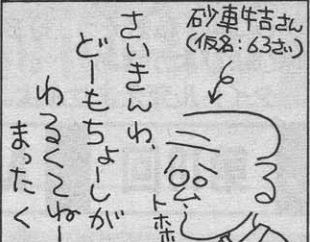 砂車牛吉さん
(仮名:63さい)
さいきんわ、
どーもちょーしが
わるくてねー
まったく
トホホ